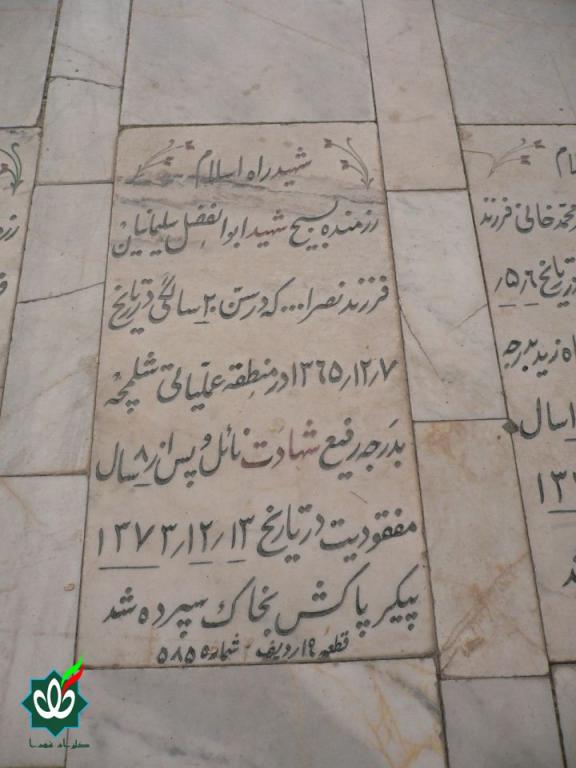 شهید راه اسلام
رزمنده بسیج شهید ابوالفضل سلیمانیان
فرزند نصرا... که در سن ۲۰ سالگی در تاریخ
۱۳۶۵٫۱۲٫۷ در منطقه عملیاتی شلمچه
بدرجه رفیع شهادت نائل و پس از ۸ سال
مفقودیت در تاریخ ۱۳۷۳٫۱۲٫۱۳
پیکر پاکش بخاک سپرده شد
قطعه ۱۹ ردیف - شماره ۵۸۵
محمدخانی فرزند
تاریخ ۵٫۶٫
زید بدرجه
سال